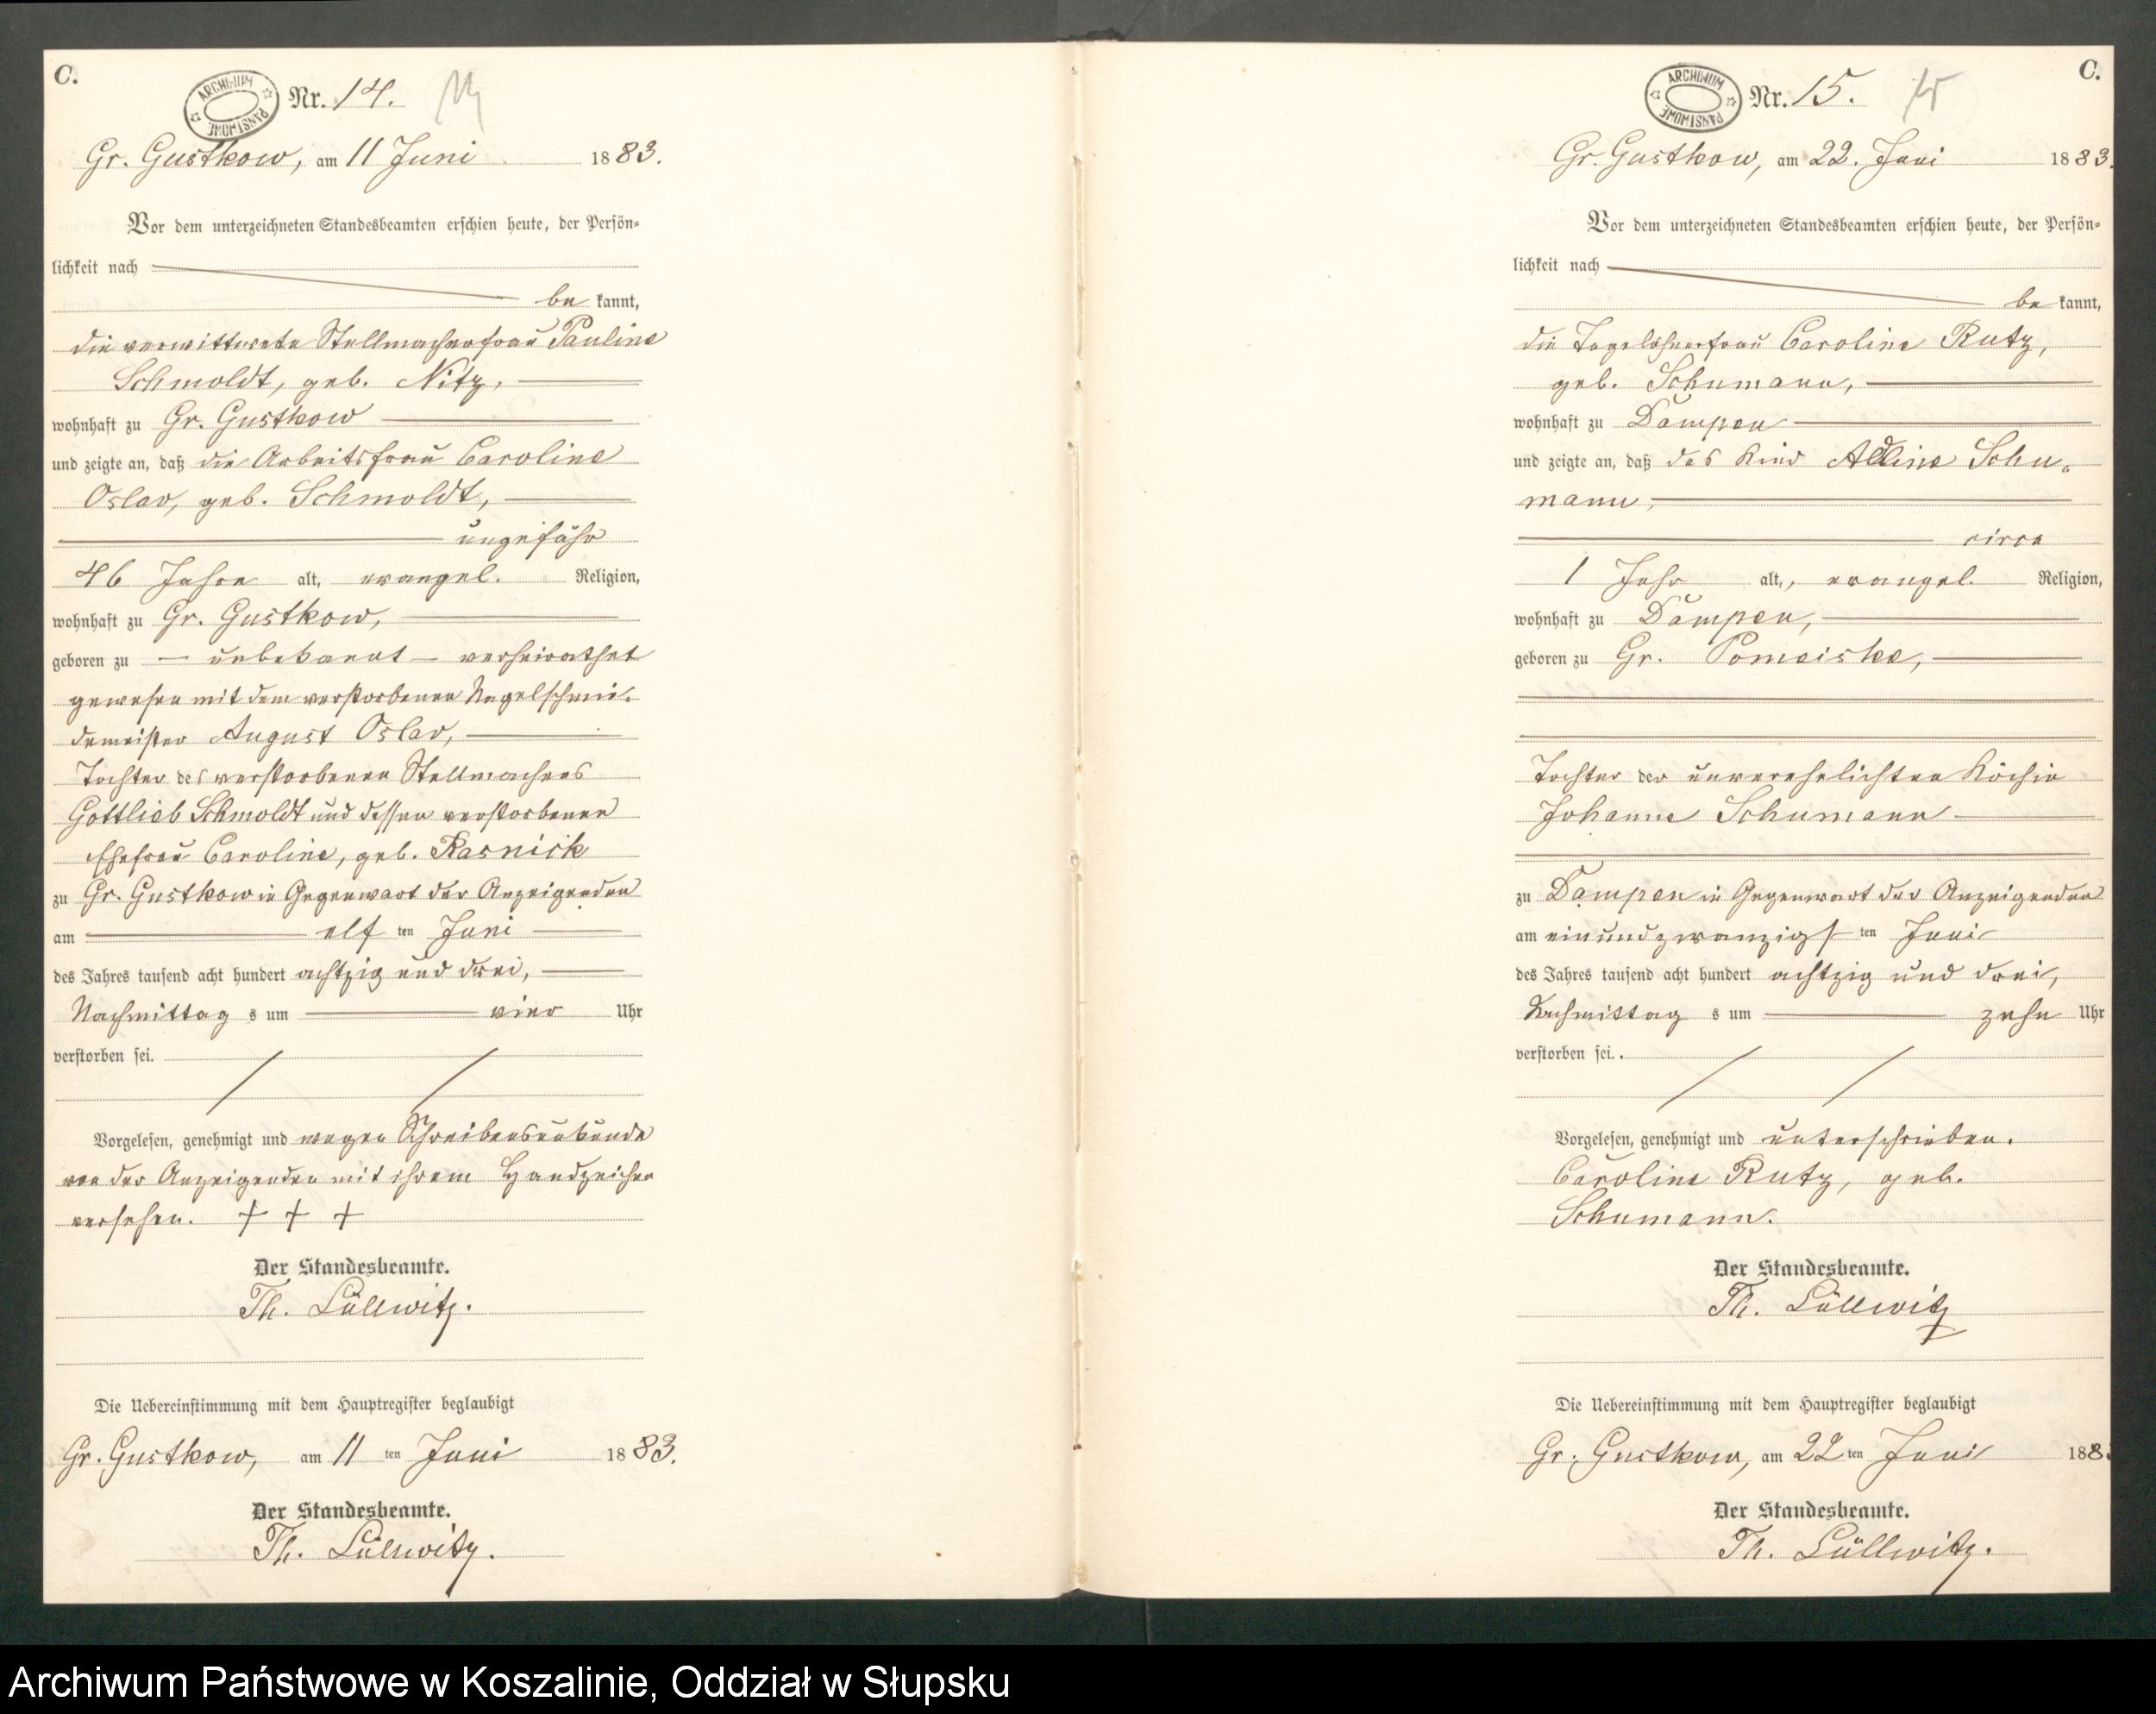 C.
ARCHIWUM PAŃSTWOWE
Nr. 14.
14
Gr. Gustkow, am 11 Juni 1883.
Vor dem unterzeichneten Standesbeamten erschien heute, der Persön-
lichkeit nach
be kannt,
die verwittwete Stellmacherfrau Pauline
Schmoldt, geb. Nitz,
wohnhaft zu Gr. Gustkow
und zeigte an, daß die Arbeitsfrau Caroline
Oslav, geb. Schmoldt,
ungefähr
46 Jahre alt, evangel. Religion,
wohnhaft zu Gr. Gustkow,
geboren zu — unbekannt — verheirathet
gewesen mit dem verstorbenen Nagelschmie-
demeister August Oslav,
Tochter des verstorbenen Stellmachers
Gottlieb Schmoldt und dessen verstorbenen
Ehefrau Caroline, geb. Rasnick
zu Gr. Gustkow in Gegenwart der Anzeigenden
am elf ten Juni
des Jahres tausend acht hundert achtzig und drei,
Nachmittag s um vier Uhr
verstorben sei.
Vorgelesen, genehmigt und wegen Schreibensunkunde
von der Anzeigenden mit ihrem Handzeichen
versehen. + + +
Der Standesbeamte.
Th. Lüllwitz.
Die Uebereinstimmung mit dem Hauptregister beglaubigt
Gr. Gustkow, am 11 ten Juni 1883.
Der Standesbeamte.
Th. Lüllwitz.
C.
ARCHIWUM PAŃSTWOWE
Nr. 15.
15
Gr. Gustkow, am 22. Juni 1883.
Vor dem unterzeichneten Standesbeamten erschien heute, der Persön-
lichkeit nach
be kannt,
die Tagelöhnerfrau Caroline Rutz,
geb. Schumann,
wohnhaft zu Dampen
und zeigte an, daß das Kind Adline Schu-
mann,
circa
1 Jahr alt, evangel. Religion,
wohnhaft zu Dampen,
geboren zu Gr. Pomeiske,
Tochter der unverehelichten Köchin
Johanne Schumann
zu Dampen in Gegenwart der Anzeigenden
am einundzwanzigs ten Juni
des Jahres tausend acht hundert achtzig und drei,
Nachmittag s um zehn Uhr
verstorben sei.
Vorgelesen, genehmigt und unterschrieben.
Caroline Rutz, geb.
Schumann.
Der Standesbeamte.
Th. Lüllwitz
Die Uebereinstimmung mit dem Hauptregister beglaubigt
Gr. Gustkow, am 22 ten Juni 188
Der Standesbeamte.
Th. Lüllwitz.
Archiwum Państwowe w Koszalinie, Oddział w Słupsku